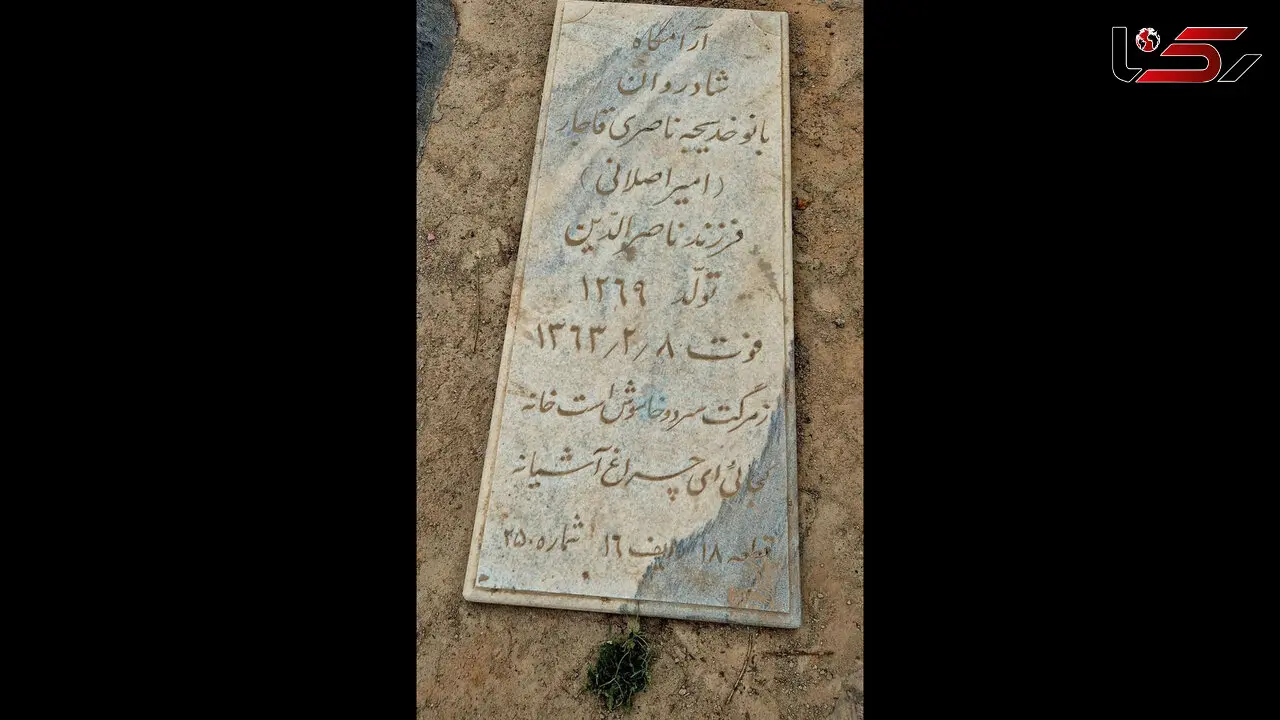 آرامگاه
شادروان
بانو خدیجه ناصری قاجار
(امیراصلانی)
فرزند ناصرالدّین
تولّد ۱۲۶۹
فوت ۱۳۶۳٫۲٫۸
از مرگت سرد و خاموش است خانه
کجائی ای چراغ آشیانه
قطعه ۱۸ ردیف ۱۶ شماره ۲۵۰
رکنا